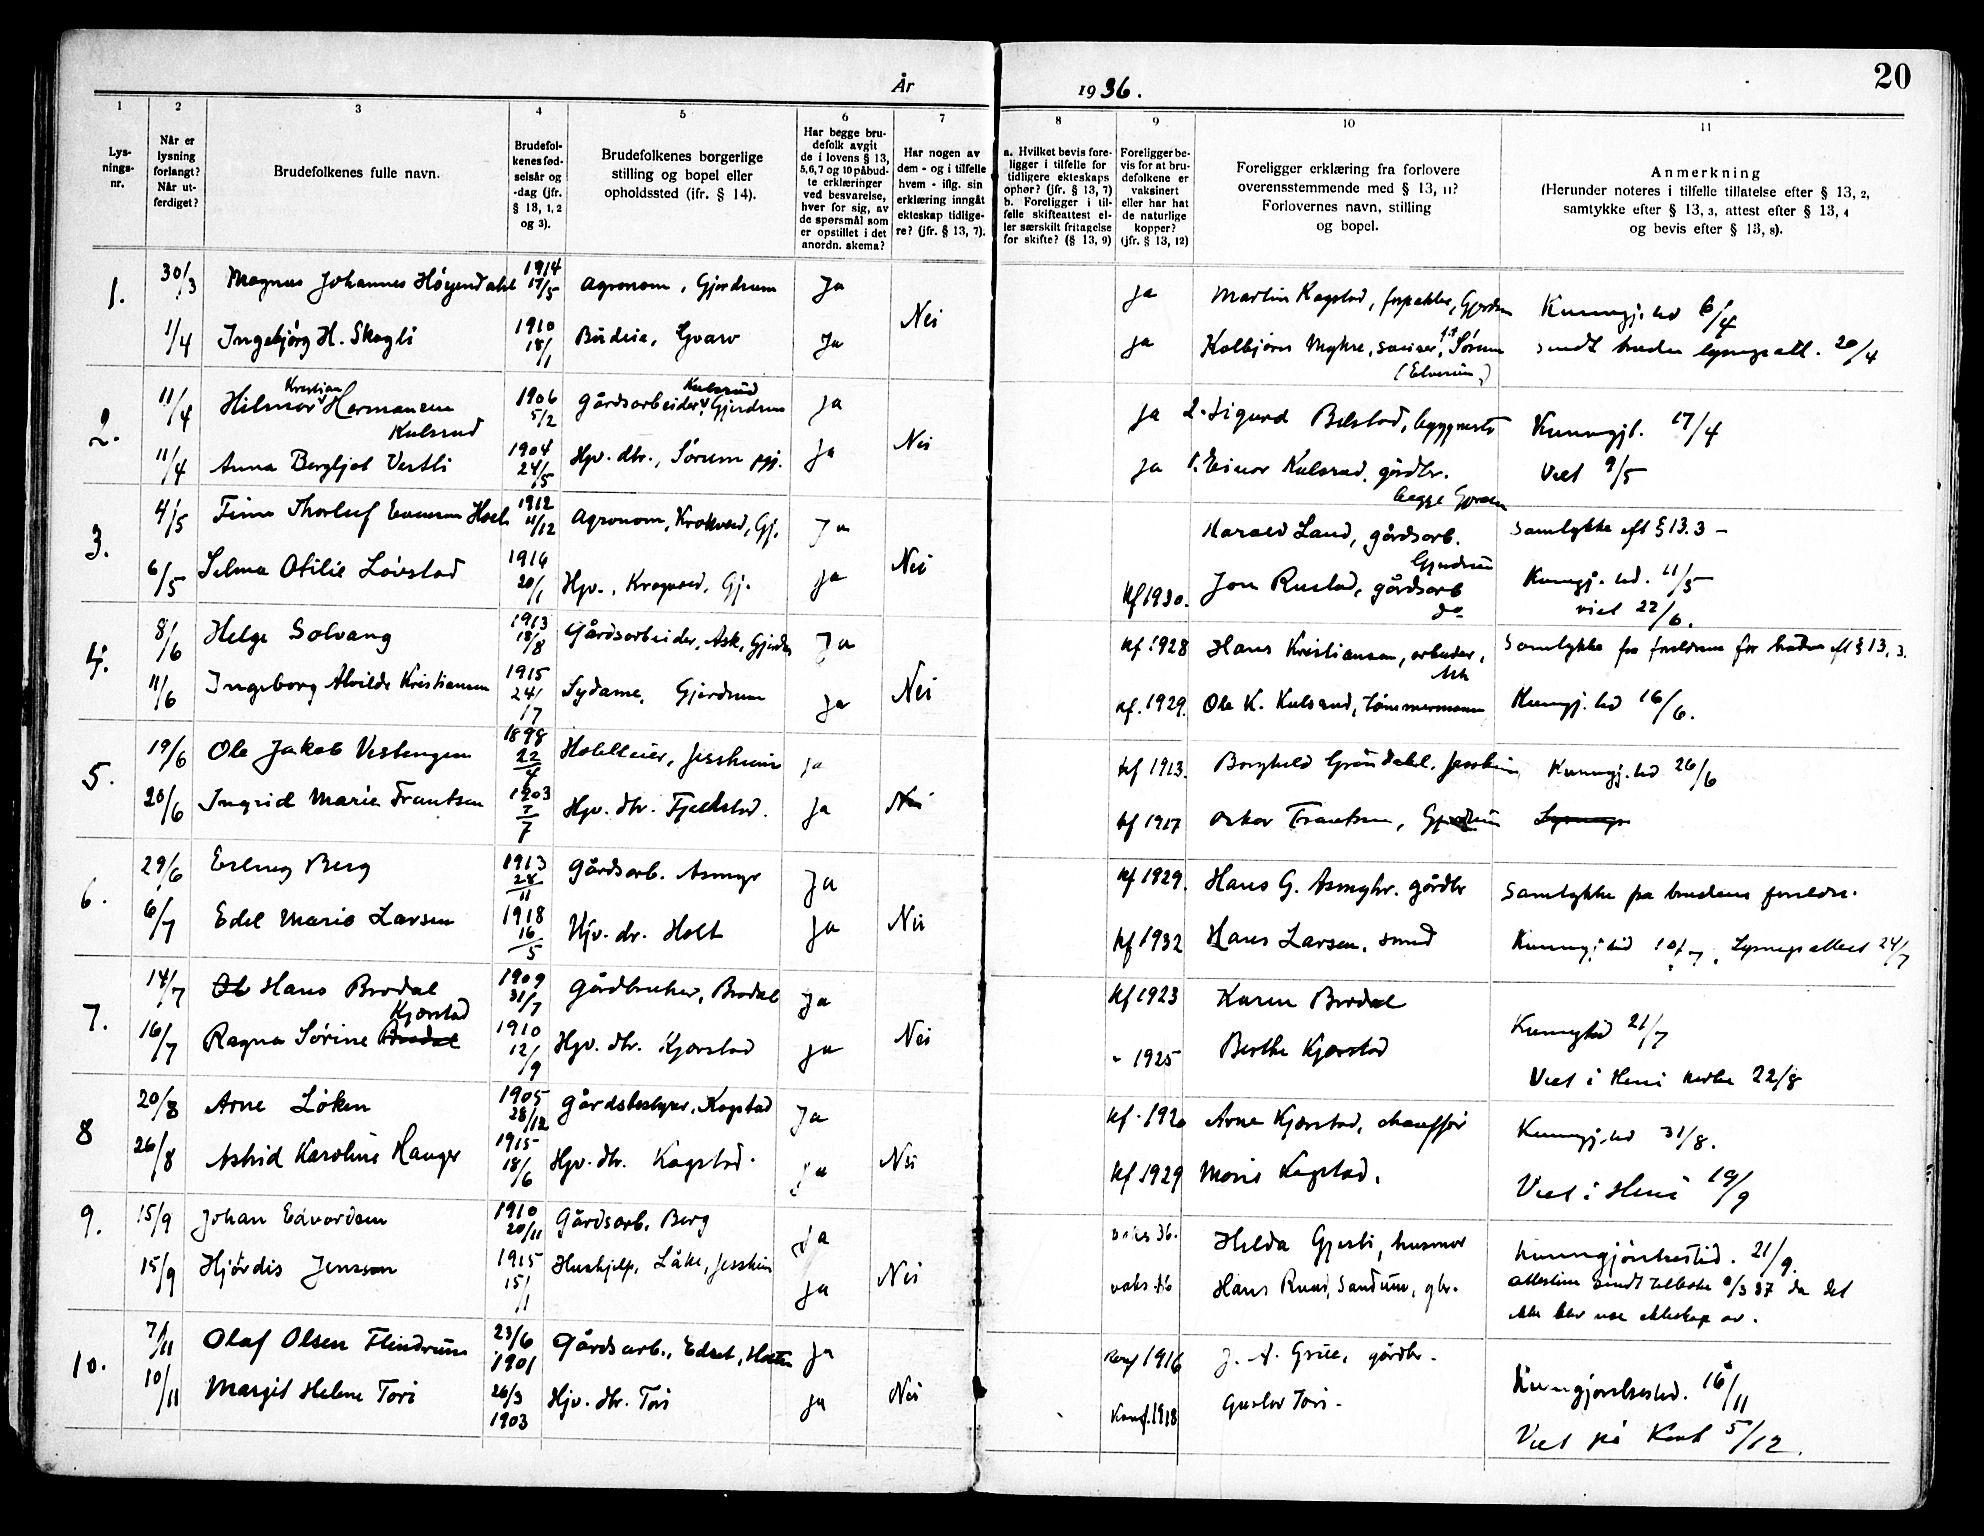 20
År 1936.
1 2 3 4 5 6 7 8 9 10 11
Lys-
nings-
nr.
Når er
lysning
forlangt?
Når ut-
ferdiget?
Brudefolkenes fulle navn.
Brudefol-
kenes fød-
selsår og
-dag (jfr.
§ 13, 1, 2
og 3).
Brudefolkenes borgerlige
stilling og bopel eller
opholdssted (jfr. § 14).
Har begge bru-
defolk avgit
de i lovens § 13,
5, 6, 7 og 10 påbud-
te erklæringer
ved besvarelse,
hver for sig, av
de spørsmål som
er opstillet i det
anordn. skema?
Har nogen av
dem - og i tilfelle
hvem - iflg. sin
erklæring inngåt
ekteskap tidlige-
re? (jfr. § 13, 7).
a. Hvilket bevis fore-
ligger i tilfelle for
tidligere ekteskaps
ophør? (jfr. § 13, 7)
b. Foreligger i til-
felle skifteattest el-
ler særskilt fritagelse
for skifte? (§ 13, 9)
Foreligger be-
vis for at bru-
defolkene er
vaksinert
eller har hat
de naturlige
kopper?
(jfr. § 13, 12)
Foreligger erklæring fra forlovere
overensstemmende med § 13, 11?
Forlovernes navn, stilling
og bopel.
Anmerkning
(Herunder noteres i tilfelle tillatelse efter § 13, 2,
samtykke efter § 13, 3, attest efter § 13, 4
og bevis efter § 13, 8).
1. 30/3 Magnus Johannes 1914 17/5 Agronom, Gjerdrum Ja Nei ja Martin Kogstad, Kunngj. tid 6/4
1/4 Ingebjørg H. Skogli 1910 18/1 Budeie, Ja ja Kolbjørn Myhre, Sørum 20/4
(Elverum)
2. 11/4 Hilmar Kristian Hermansen Kulsrud 1906 5/2 Gårdsarbeider, Kulsrud Gjerdrum ja Nei ja 2. Sigurd Kunngj. 17/4
11/4 Anna Bergljot Vestli 1904 24/5 Hjv. dtr., Sørum Ja ja 1. Einar Kulsrud, gårdbr. Viet 9/5
begge
3. 4/5 Thorleif 1912 11/12 Agronom, Gj. Ja Nei Harald Sand, gårdsarb. Gjerdrum Samtykke eft § 13.3 -
6/5 Selma Otilie Løvstad 1916 20/1 Hjv., Gj. Ja kf 1930. Jon Rustad, gårdsarb do Kunngj. tid. 11/5
viet 22/6.
4. 8/6 Helge Solvang 1913 18/8 Gårdsarbeider, Ask, Ja Nei kf 1928 Hans Kristiansen, arbeider, Ask Samtykke fra foreldrene for bruden eft § 13, 3.
11/6 Ingeborg Alvilde Kristiansen 1915 24/7 Sydame, Gjerdrum Ja kf. 1929. Ole K. Kulsrud, tømmermann Kunngj. tid 16/6.
5. 19/6 Ole Jakob Vestengen 1898 22/4 Hotelleier, Jessheim ja Nei kf 1913. Borghild Grøndahl, Kunngj. tid 26/6
20/6 Ingrid Marie Frantsen 1903 7/7 Hjv. dtr. Fjellstad. Ja kf 1917 Oskar Frantsen, Gjerdrum
6. 29/6 Erling Berg 1913 28/11 Gårdsarb. Asmyr Ja Nei kf 1929. Hans G. Asmyhr. gårdbr Samtykke fra brudens foreldre.
6/7 Edel Marie Larsen 1918 16/5 Hjv. dr. Holt Ja kf 1932 Hans Larsen, smed Kunngj. tid 10/7, Lysingsattest 24/7
7. 14/7 Hans Brodal 1909 31/7 Gårdbruker, Brodal Ja Nei kf 1923 Karen Brodal Kunngj. tid 21/7
16/7 Ragna Sørine Kjærstad 1910 12/9 Hjv. dtr. Kjærstad Ja " 1925 Berthe Kjærstad Viet i Heni kirke 22/8
8 20/8 Arne Løken 1905 28/12 Gårdsbestyrer, Kogstad Ja Nei kf. 1920 Arne Kjærstad, chauffør Kunngj. tid 31/8.
26/8 Astrid Karoline Hauger 1915 18/6 Hjv. dtr. Kogstad. Ja kf 1929 Kogstad. Viet i Heni 19/9
9. 15/9 Johan Edvardsen 1910 20/11 Gårdsarb. Berg Ja Nei vaks 36. Hilda Gjesti, husmor Kunngjørelsestid. 21/9.
15/9 Hjørdis Jensson 1915 15/1 Hushjelp, Jessheim Ja vaks 36 Hans gbr. attesten sendt tilbake 9/3 37 da det
ikke blev noe ekteskap av.
10. 7/11 Olaf Olsen Flindrum 23/6 1901 Gårdsarb., Ja Nei konf 1916 J. A. Grue, gårdbr. Kunngjørelsestid. 16/11
10/11 Margit Helene Tori 26/3 1903 Hjv. dtr. Tori Ja Konf. 1918 Gustav Tori. Viet på 5/12.